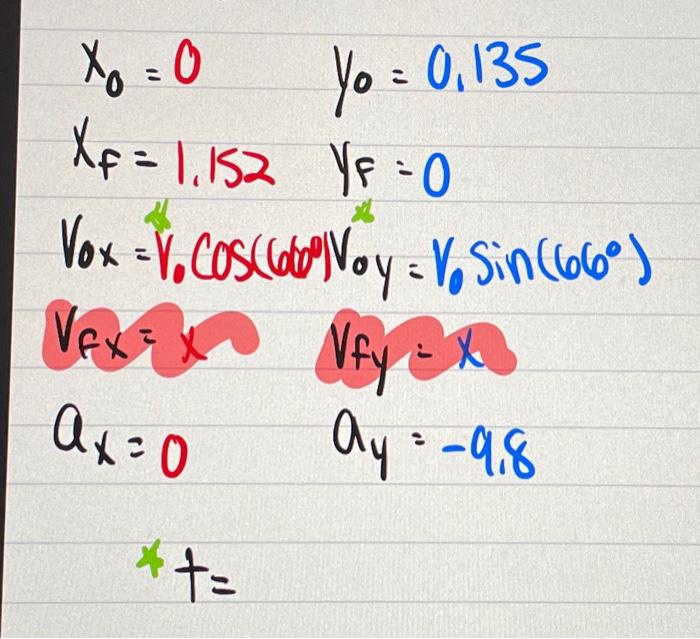 X₀ = 0 y₀ = 0.135
X_F = 1.152 y_F = 0
V₀ₓ = V₀ cos(66°) V₀y = V₀ Sin(66°)
V_Fx = x V_fy = x
aₓ = 0 a_y = -9.8
* t =